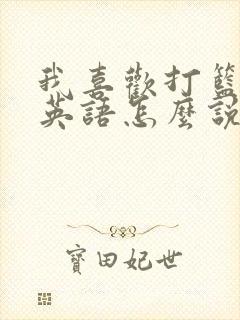 我喜歡打籃
英語怎麼說
寶田妃世